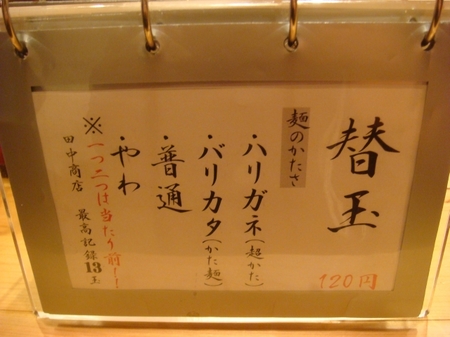 替玉
120円
麺のかたさ
・ハリガネ(超かた)
・バリカタ(かた麺)
・普通
・やわ
※一つ二つは当たり前!!
田中商店 最高記録13玉